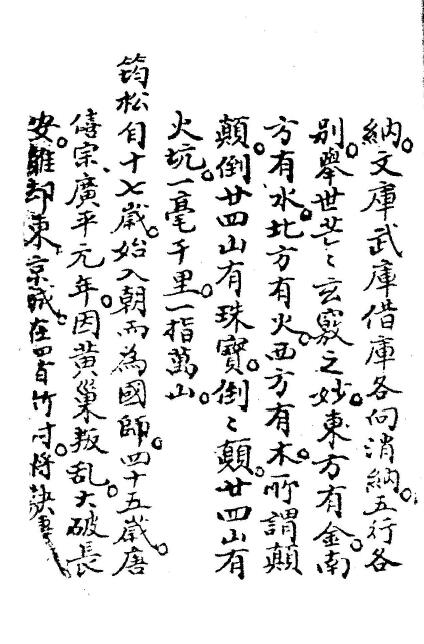 納。文庫武庫借庫各向消納。五行各
別。舉世茫〻玄竅之妙。東方有金。南
方有水。北方有火。西方有木。所謂顛
顛倒。廿四山有珠寶。倒〻顛。廿四山有
火坑。一毫千里。一指萬山。
筠松自十七歲。始入朝而為國師。四十五歲。唐
僖宗、廣平元年。因黃巢叛乱。大破長
安。雖却東京城。在四百竹寸。將訣